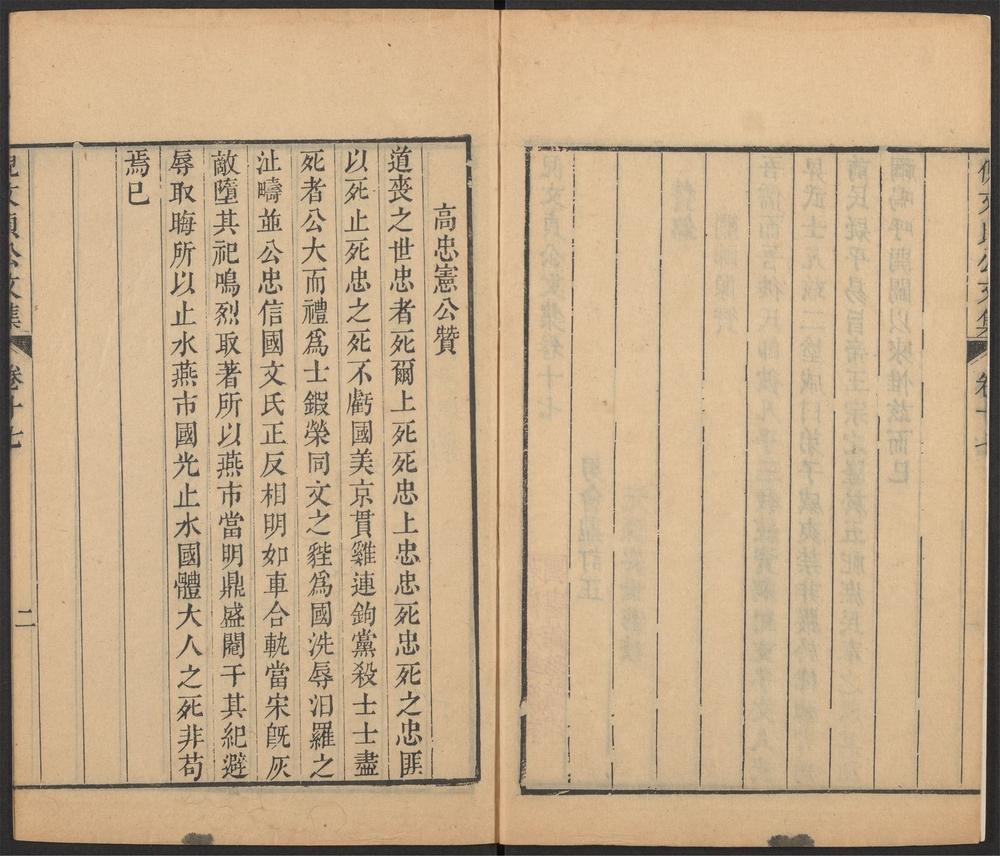 倪文貞公文集 卷十七
高忠憲公贊
道喪之世忠者死爾上死死忠上忠忠死忠死之忠匪
以死止死忠之死不虧國美京貫雞連鉤黨殺士士盡
死者公大而禮爲士鍜榮同文之狴爲國洗辱汨羅之
沚疇並公忠信國文氏正反相明如車合軌當宋旣灰
敵墮其祀鳴烈取著所以燕市當明鼎盛閹干其紀避
辱取晦所以止水燕市國光止水國體大人之死非苟
焉已
倪文貞公文集 卷十七 二